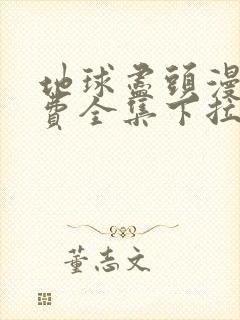 地球盡頭漫
費全集下拉
董志文